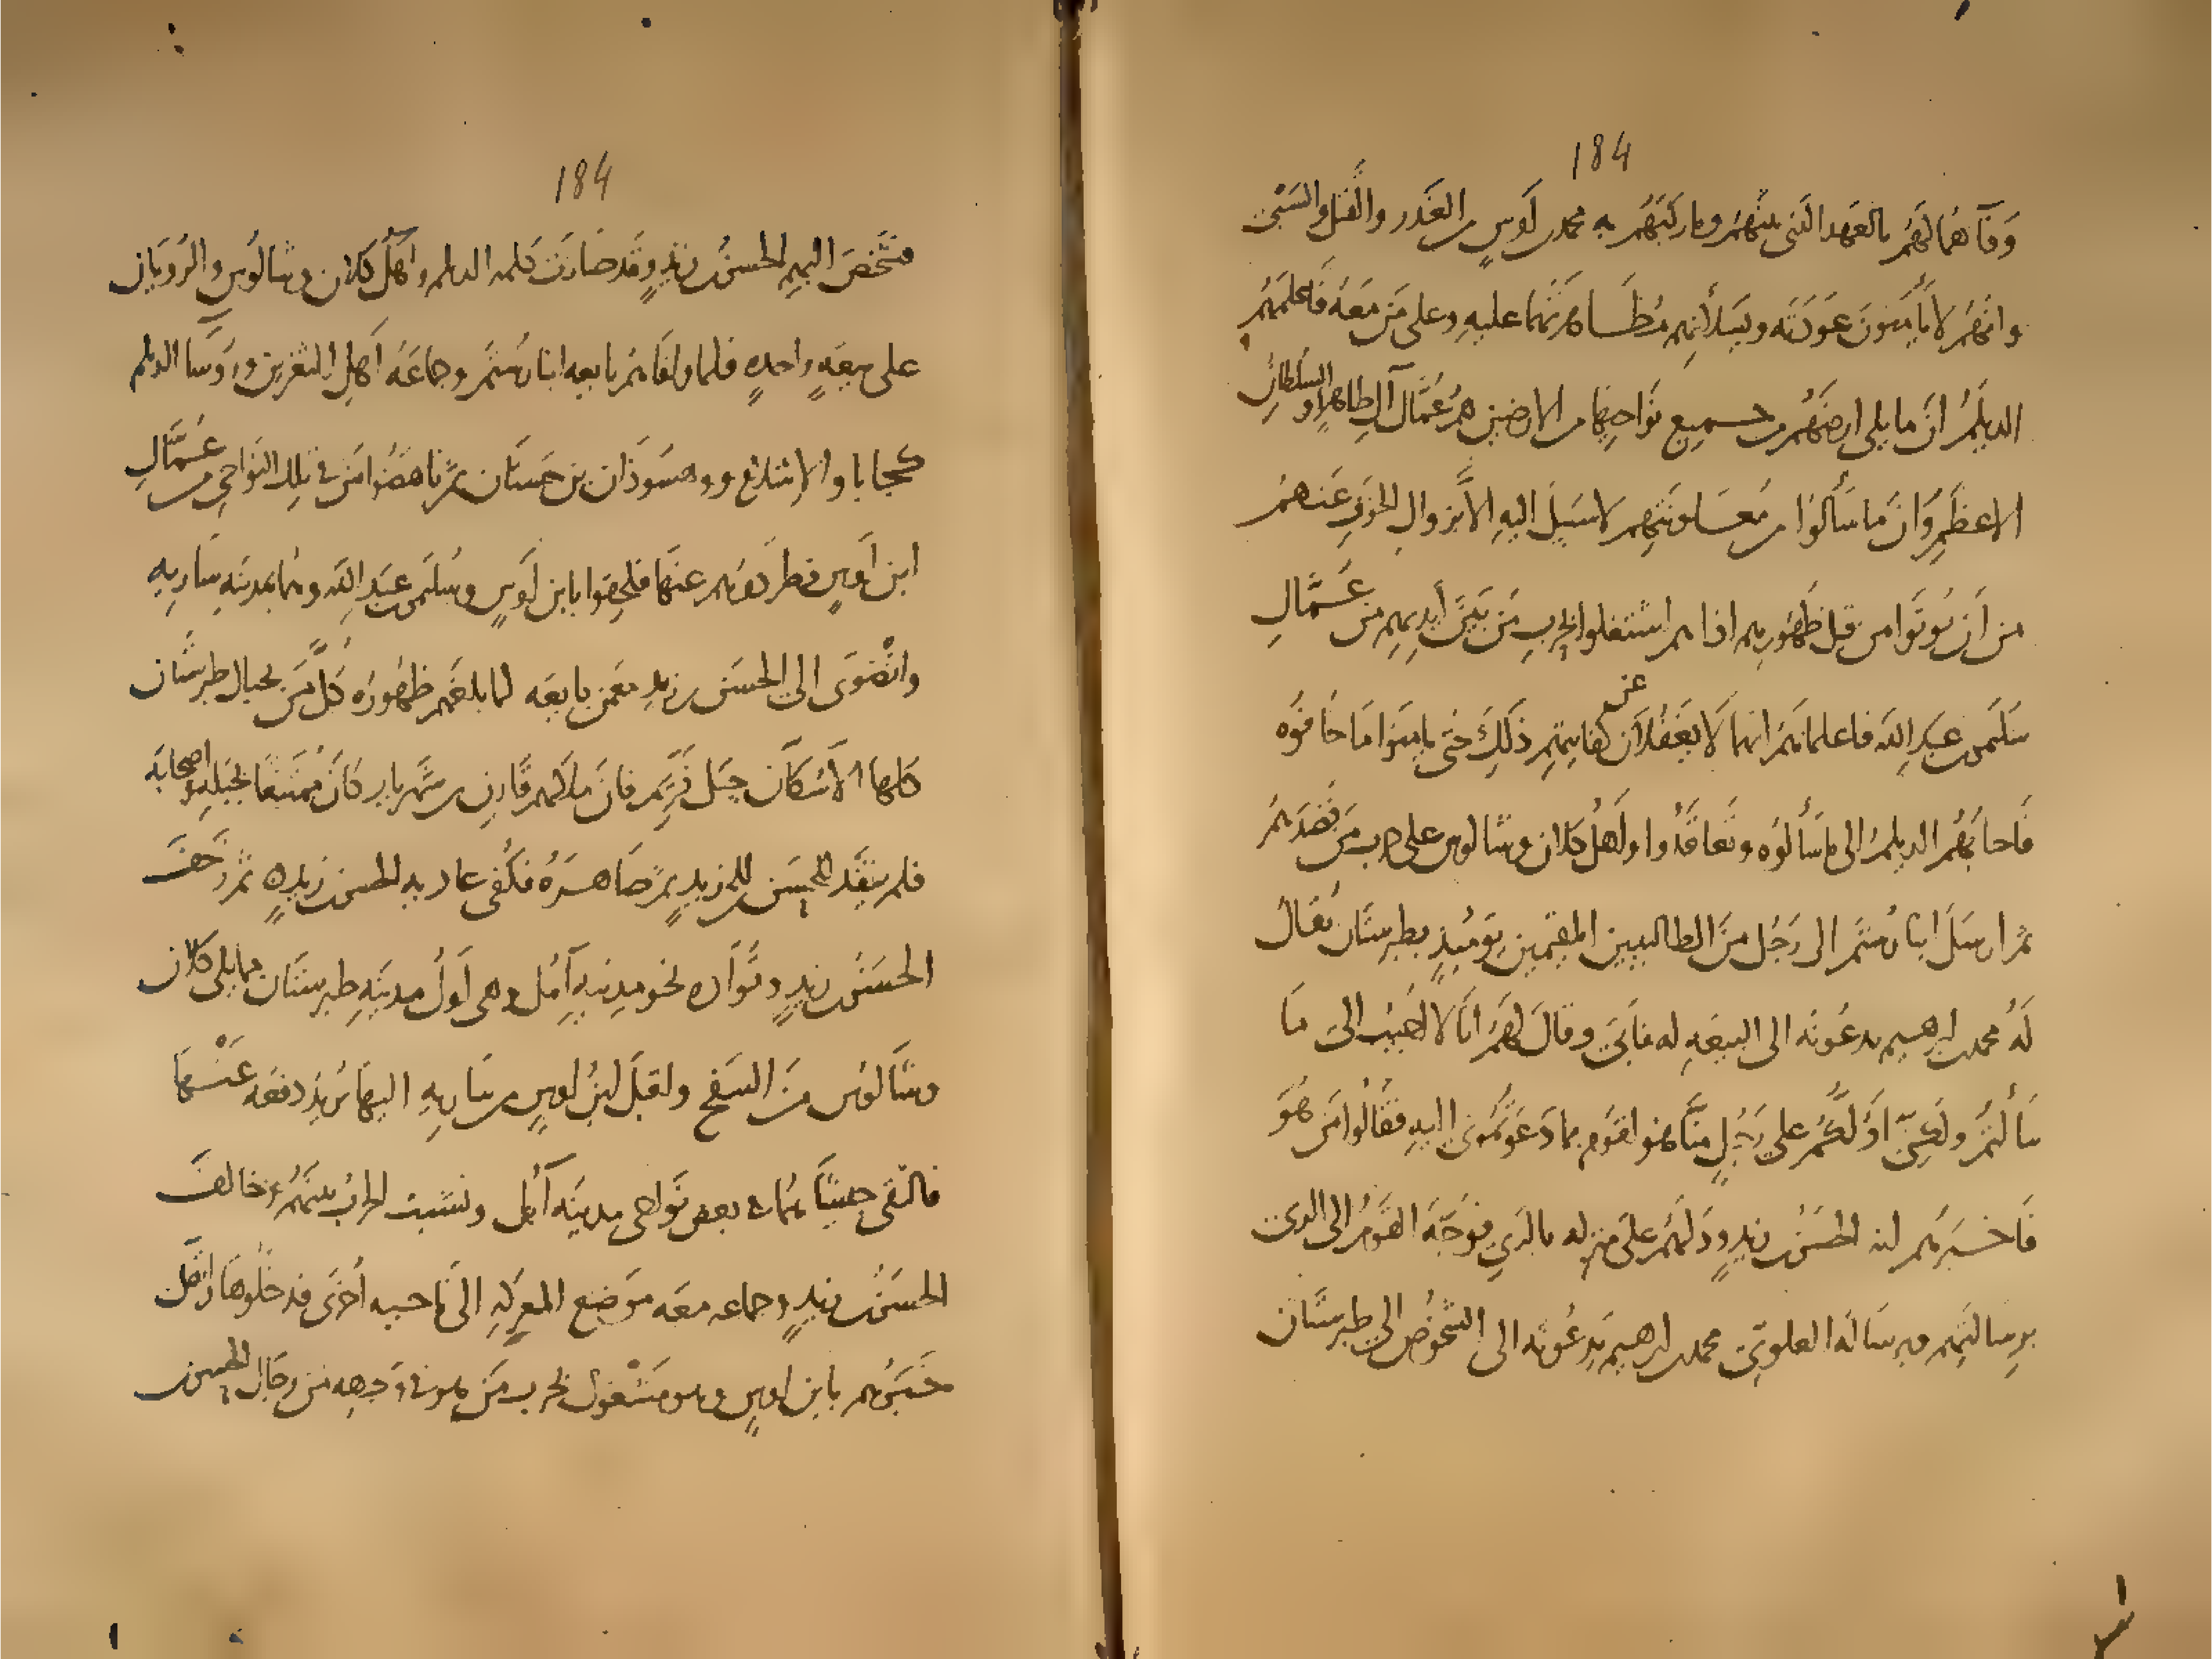 184
وَفَآهُمَا لَهُم بالعَهد الذى بينهم وما ركبهم به محمد بن اَوسٍ من الغَدر والقَتل والسَبْى
وانهُم لا يأمَنونَ عَودَتَه ويَسَلُانِهم مُظَاهَرَتهما عليهِ وعلى مَن مَعَهُ فَاعلَمَهُم
الديلَمُ انَ ما يلى ارضَهُم من جميع نَوَاحِيهَا من الارضين هم عُمّال آلِ طاهرٍ او السلطان
الاعظَمِ وَانَ مَا سَأَلُوا من مُعَاونَتِهم لا سَبِيلَ اليهِ الا بزوالِ الخوفِ عَنهم
من اَن يُوتَوا من قِبَل ظُهُورِهم اذا هم اشتغلوا بحَربِ مَن بَيْنَ اَيدِيهِم من عُمَّالِ
سُلَيمَن بن عَبدِ الله فاعلماهُم انهما لَا يَغفُلَانِ عن كفايتهم ذلِكَ حَتى يامَنوا مَا خَافُوه
فَاجابهُم الديلمُ الى ما سَأَلُوه وتَعَاقَدُوا واَهلُ كَلَار وشَالُوس على حرب مَن قَصَدَهُم
ثم ارسَلَ ابنا رُستَم الى رَجُل مِنَ الطالبيين المقيمين يَومَئِذٍ بطبرستَان يُقَالُ
لَهُ محمد بن ابرهيم يدعُونَه الى البيعَهِ له فاَبَى وقالَ لَهُم انَا لا اُجيبُ الى مَا
سَأَلتُم ولَكِنّى اَدُلّكُم على رَجُلٍ مِنّا هو اقوَم بما دَعَوتُمُونى اليهِ فقَالُوا مَن هُوَ
فَاَخبَرَهُم انه الحسَنُ بن زيدٍ ودَلّهُم على مَنزِله بالرَىِ فوَجّهَ القَومُ الى الرى
بِرِسالتِهِم وبرسَالَه العلوِىّ محمد بن ابرهيم يَدعُونَه الى الشُخُوص الى طبرستَان
184
فشَخَصَ اليهِم الحسنُ بن زيدٍ وقَد صَارَت كلمه الديلم واَهلُ كلار وشالُوس والرُويَان
على بيعَهٍ واحِدهٍ فلما وافَاهُم بايعه ابنا رُستَم وجماعَهُ اَهلِ الثغرين ورُؤسَا الديلم
كجايا والاشلاغ ووهسُوذَان بن جَستَان ثم ناهَضُوا مَن فى تِلك النَوَاحى من عُمَّالِ
ابن اَوسٍ فطَرَدوهُم عنهَا فلحِقوا بابن اَوسٍ وسُلَيمَن بن عَبدِ الله وهُما بمَدينهِ سَاريه
وانْضَوَى الى الحسَن بن زيدٍ مَع مَن بايعَه لما بلغَهُم ظهُورُه كُلُّ مَن بجبال طبرستَان
كلها الا سُكَّانَ جَبَل فَرِيم فان ملِكَهُم قَارِن بن شَهريار كانَ مُمتَنِعًا بجَبَلِه واصحَابه
فلم ينقَد للحَسَن بن زيدٍ ثم صَاهَرَهُ فكُفى عاديه الحسن بن زيدٍ ثم زَحَفَ
الحسَنُ بن زيدٍ وقُوَّادُه نحو مدينهِ آمُل وهى اَولُ مدينَهِ طبرستَان مما يلى كلار
وشَالُوس مِنَ السَفح واقبلَ ابنُ اوسٍ من سَاريهِ اليهَا يُريدُ دفعَه عَنْهَا
فالتقى جيشَاهُمَا فى بعض نَواحى مدينَه آمُل ونشبت الحربُ بينَهُم وخالفَ
الحسَنُ بن زيدٍ وجماعه معَه مَوضِعَ المعركَهِ الى نَاحيه اُخرَى فدخَلُوهَا واتصَل
خَبَرُهم بابن اوسٍ وهو مشْغُولٌ بحرب مَن هو فى وَجهِه من رجَالِ الحسن بن